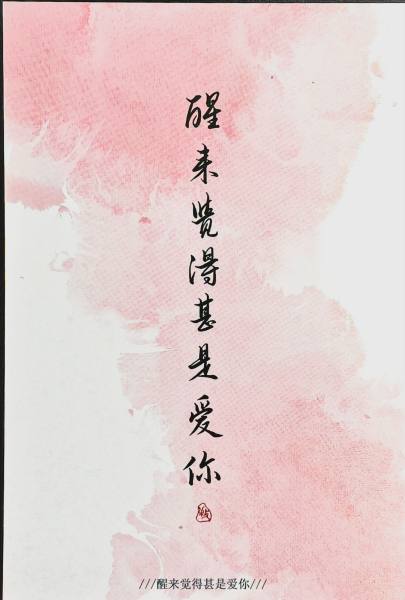 醒来觉得甚是爱你
///醒来觉得甚是爱你///